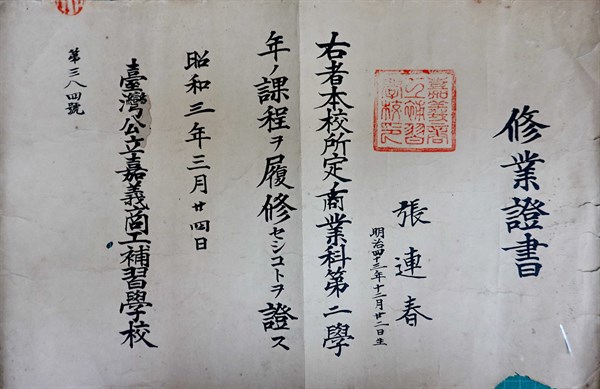 修業證書
張連春
明治四十三年十二月廿二日生
嘉義商
工補習
學校印
右者本校所定商業科第二學
年ノ課程ヲ履修セシコトヲ證ス
昭和三年三月廿四日
臺灣公立嘉義商工補習學校
第三八四號